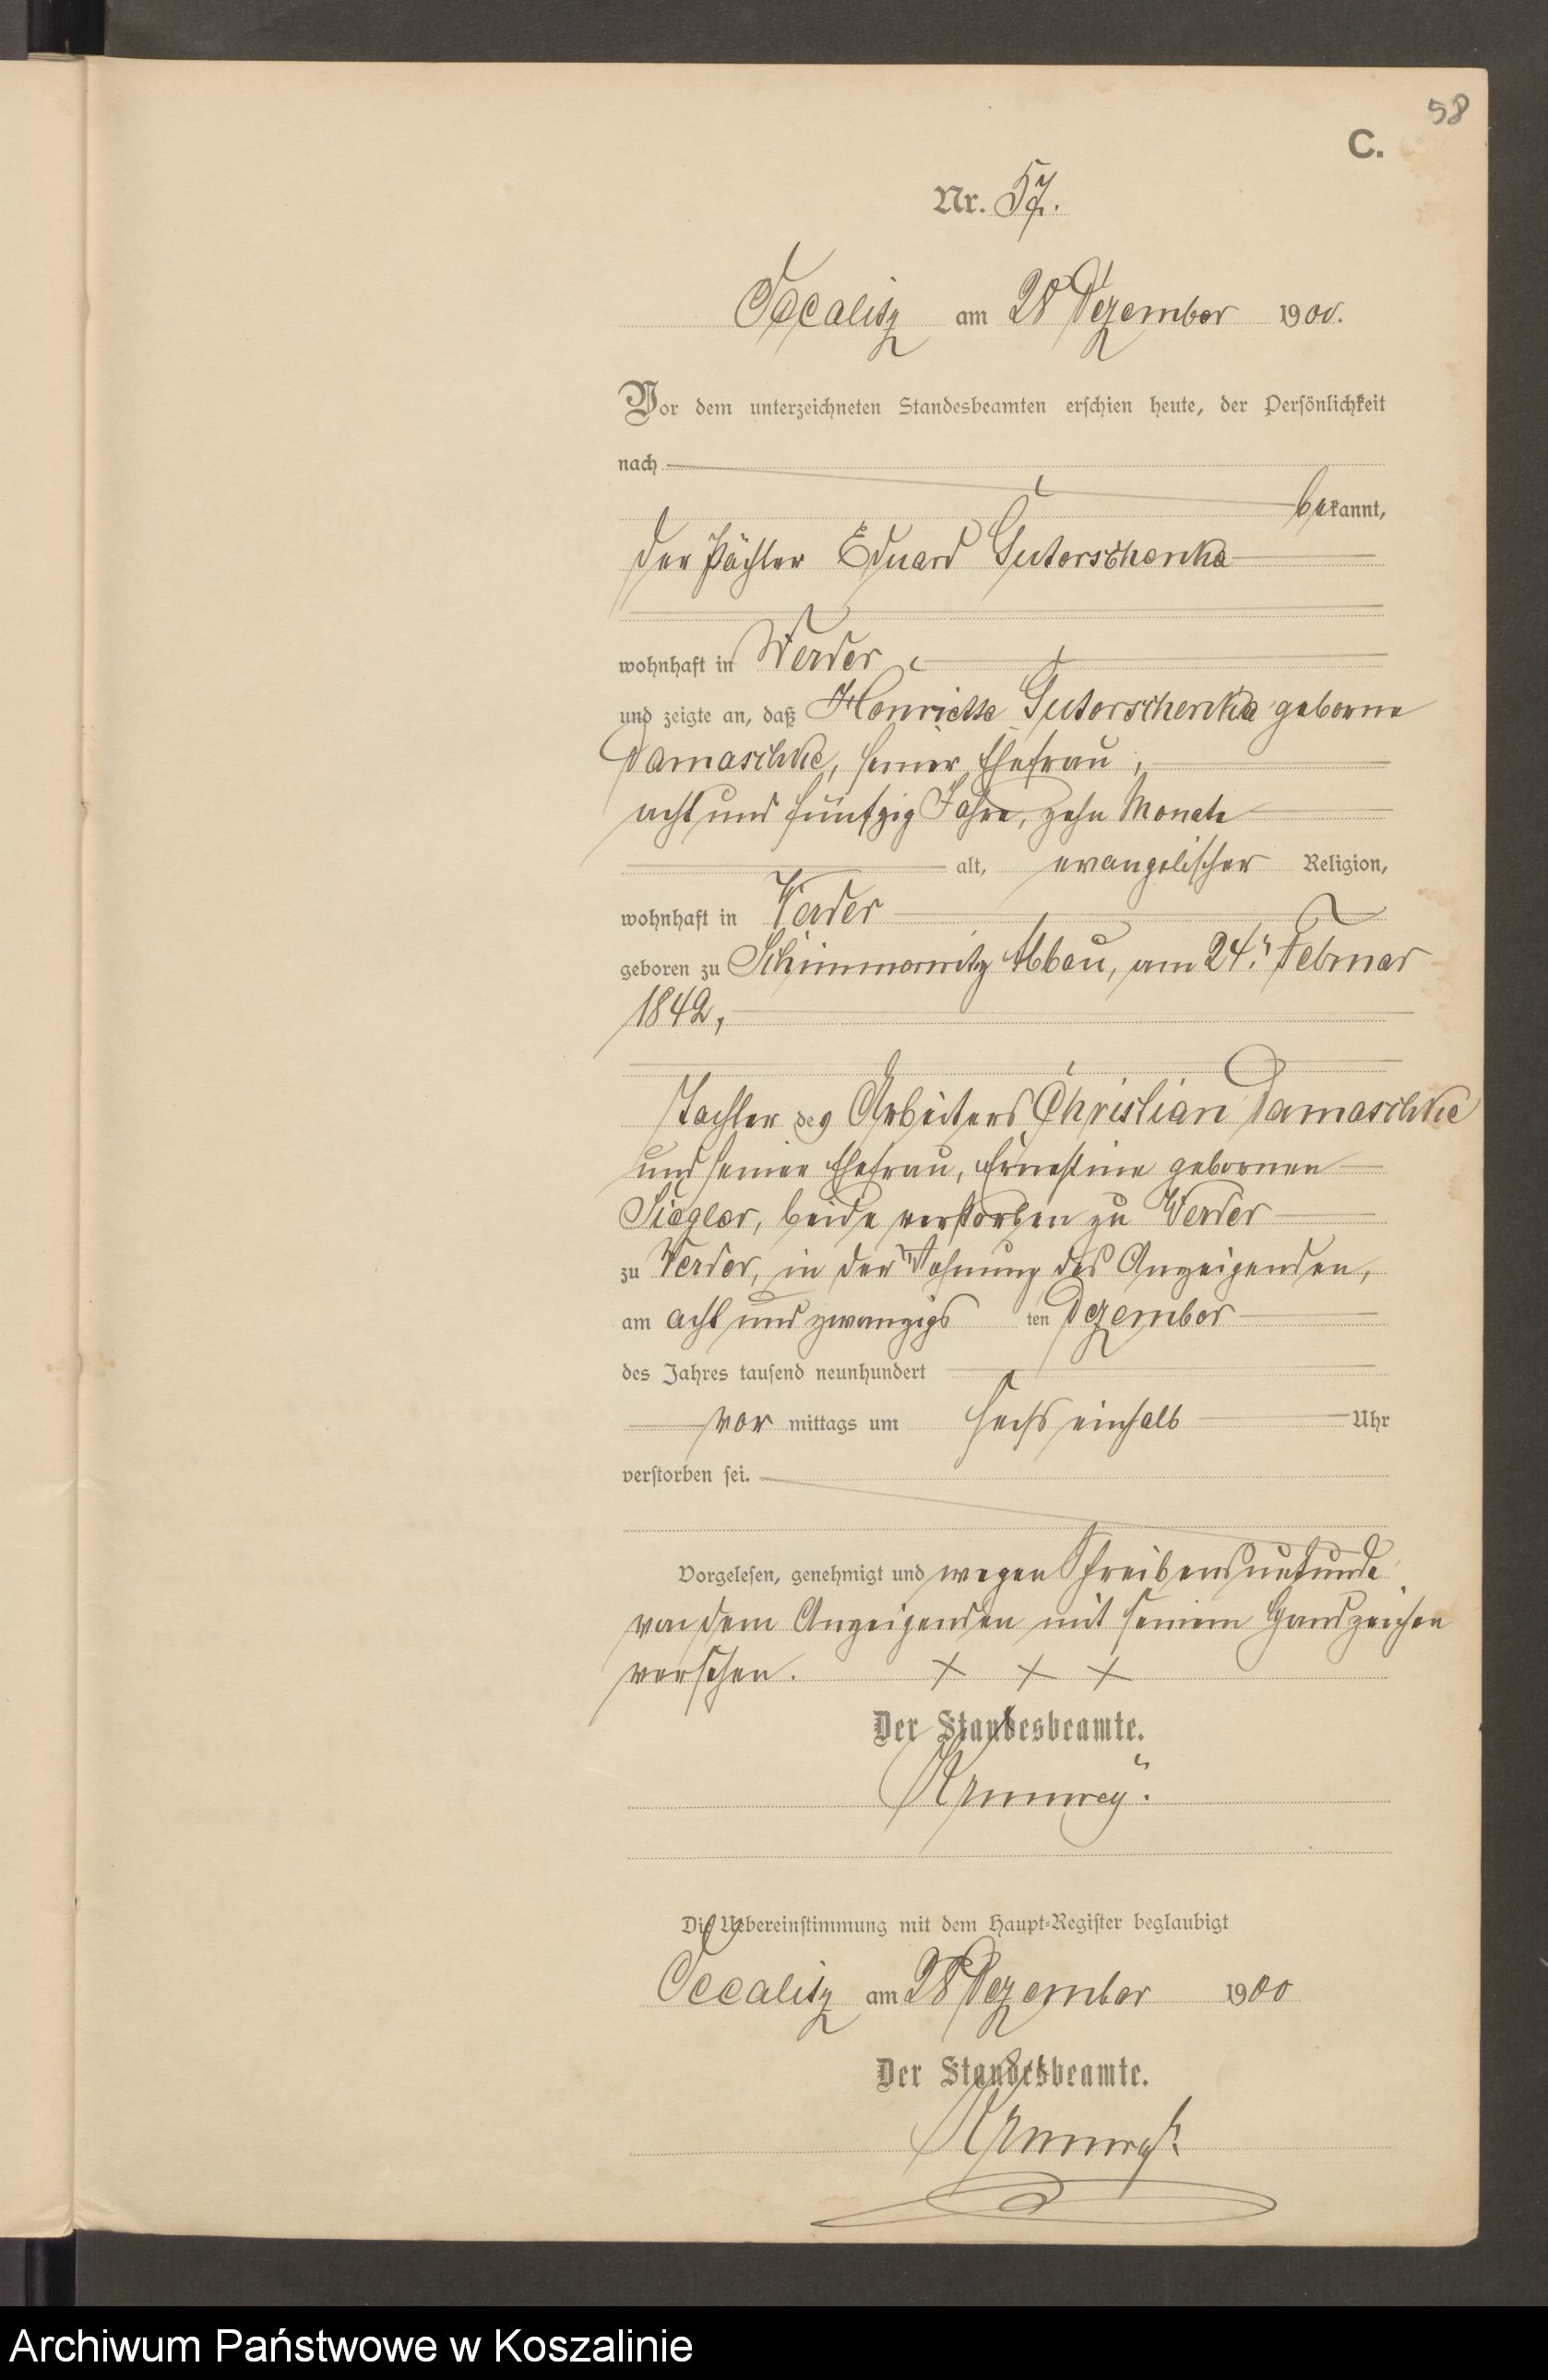 58
C.
Nr. 57.
am 28 Dezember 1900.
Vor dem unterzeichneten Standesbeamten erschien heute, der Persönlichkeit
nach
bekannt,
der Pächter Eduard Guterschenke
wohnhaft in Werder
und zeigte an, daß Henriette Guterschenke geborne
Damaschke, seiner Ehefrau,
acht und fünfzig Jahre, zehn Monate
alt, evangelischer Religion,
wohnhaft in Werder
geboren zu Abbau, am 24. Februar
1842,
Tochter des Arbeiters Christian Damaschke
und seiner Ehefrau, Ernestine gebornen
Siegler, beide verstorben zu Werder
zu Werder, in der Wohnung des Anzeigenden,
am acht und zwanzigs ten Dezember
des Jahres tausend neunhundert
vor mittags um sechs einhalb Uhr
verstorben sei.
Vorgelesen, genehmigt und wegen Schreibensunkunde
von dem Anzeigenden mit seinem Handzeichen
versehen. + + +
Der Standesbeamte.
Die Uebereinstimmung mit dem Haupt-Register beglaubigt
am 28 Dezember 1900
Der Standesbeamte.
Archiwum Państwowe w Koszalinie